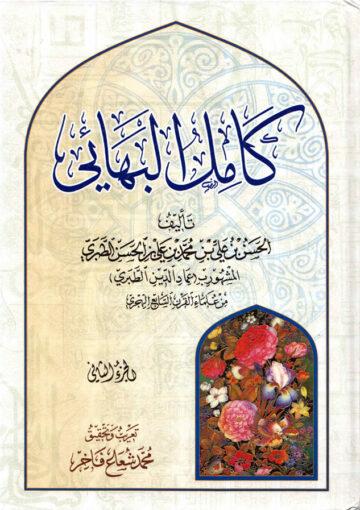 كامل البهائي
تأليف
الحسن بن علي بن محمد بن علي بن الحسن الطبري
المشهور بـ (عماد الدين الطبري)
من علماء القرن السابع الهجري
الجزء الثاني
تعريب وتحقيق
محمد شعاع فاخر